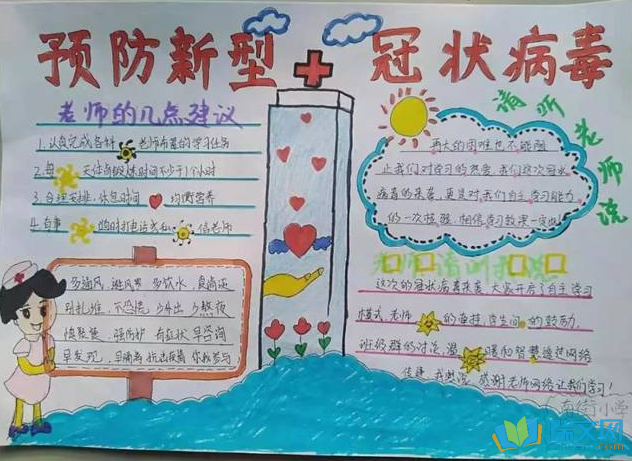 预防新型冠状病毒
老师的几点建议
1.认真完成各科老师布置的学习任务
2.每天体育锻炼时间不少于1个小时
3.合理安排,休息时间 均衡营养
4.有事 随时打电话或私信老师
多通风,避风寒 多饮水,良
别扎堆,不恐慌 少外出 少熬夜
慎聚餐,强防护 有症状 早咨询
早发现,早隔离 抗击疫情 你我参与
请听老师说
再大的困难也不能阻
止我们对学习的热爱,我们这次冠状
病毒的来袭,更是对我们自主学习能力
的一次按验,相信学习效果一定
老师请听我说
这次的冠状病毒来袭,大家开启了自主学习
模式,老师 的坚持,学生间 的鼓励,
班级群的讨论,温暖和智慧通过网络
传递,我想说:感谢老师网络让我们学习!
南街小学